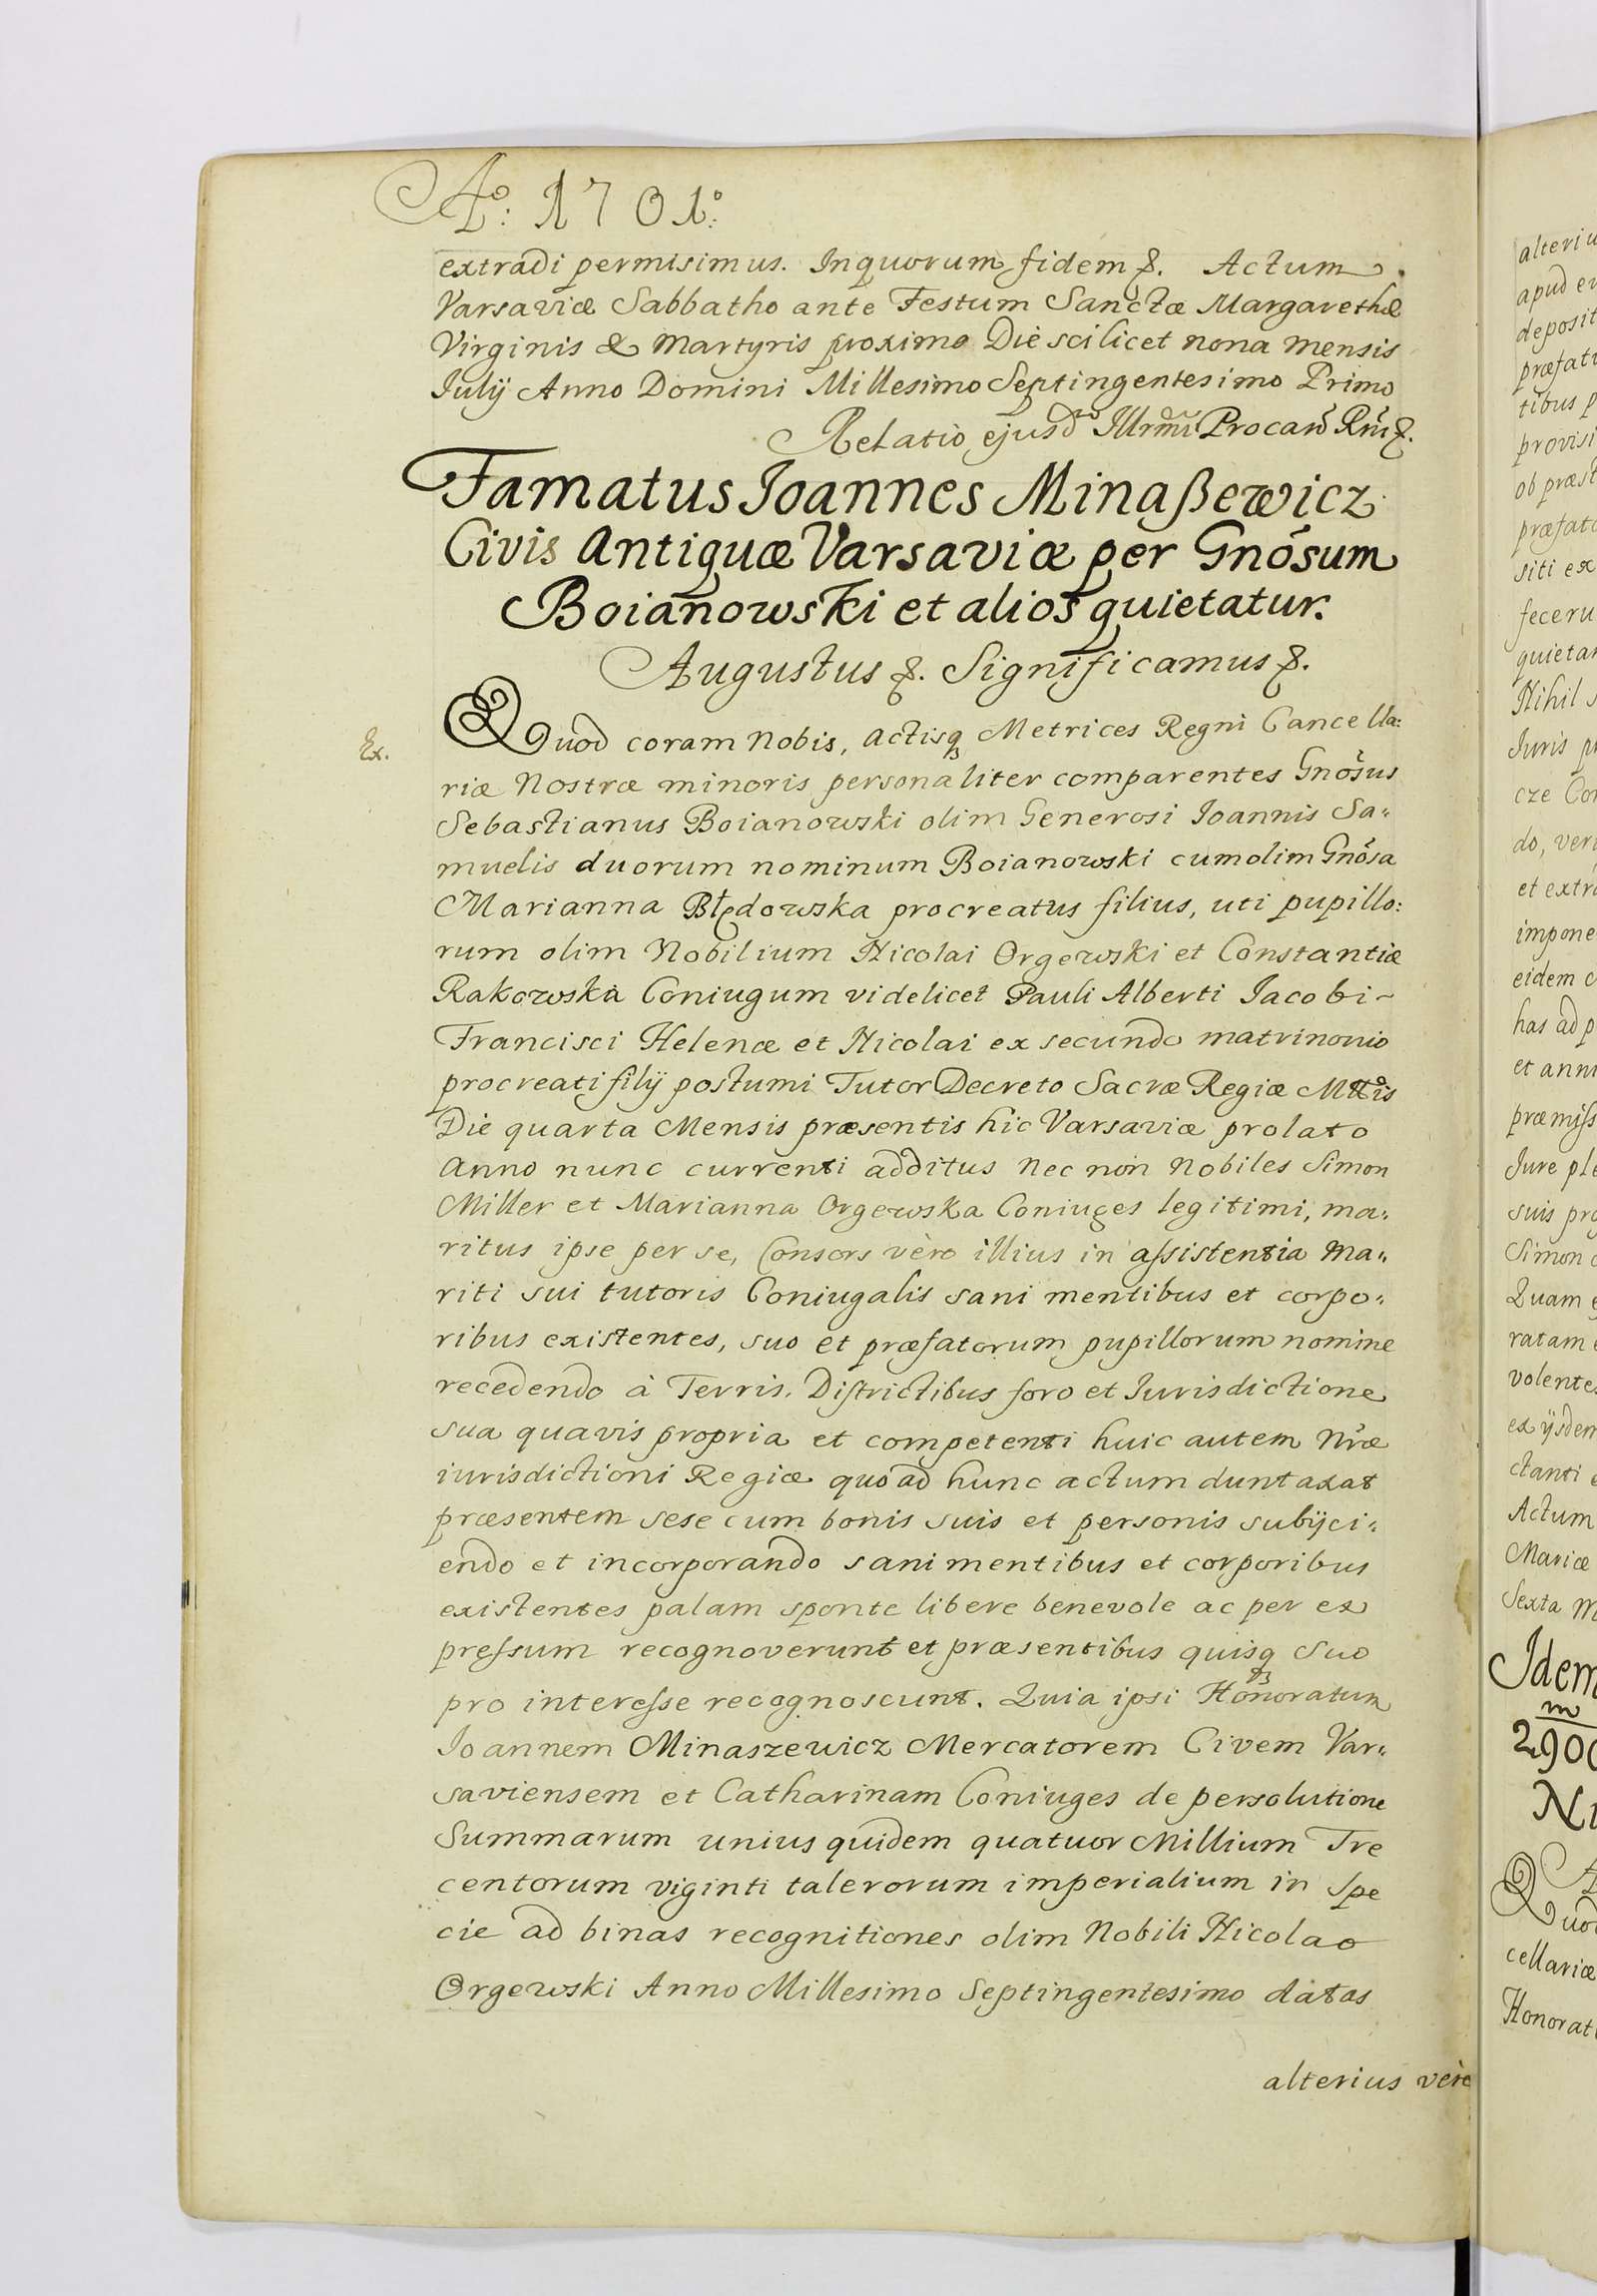 Aº: 1701º:
extradi permisimus. In quorum fidem &. Actum
Varsaviæ Sabbatho ante Festum Sanctæ Margarethæ
Virginis & Martyris proximo Die scilicet nona mensis
Iulij Anno Domini Millesimo Septingentesimo Primo
Relatio ejusd Procan Rni &.
Famatus Ioannes Minaßewicz
Civis Antiquæ Varsaviæ per Gnósum
Boianowski et alios quietatur.
Augustus &. Significamus &.
Ex.
Quod coram Nobis, Actisq3 Metrices Regni Cancella:
riæ Nostræ minoris personaliter comparentes Gnósus
Sebastianus Boianowski olim Generosi Ioannis Sa=
muelis duorum nominum Boianowski cum olim Gnósa
Marianna Błędowska procreatus filius, uti pupillo:
rum olim Nobilium Nicolai Orgewski et Constantiæ
Rakowska Coniugum videlicet Pauli Alberti Iacobi~
Francisci Helenæ et Nicolai ex secundo matrinonio
procreati filij postumi Tutor Decreto Sacræ Regiæ Mttis
Die quarta Mensis præsentis hic Varsaviæ prolato
Anno nunc currenti additus Nec non Nobiles Simon
Miller et Marianna Orgewska Coniuges legitimi, ma=
ritus ipse per se, Consors vèro illius in aſsistentia Ma=
riti sui tutoris Coniugalis sani mentibus et corpo=
ribus existentes, suo et præfatorum pupillorum nomine
recedendo à Terris. Diſtrictibus foro et Iurisdictione
sua quavis propria et competenti huic autem Nræ
iurisdictioni Regiæ quò ad hunc actum duntaxat
præsentem sese cum bonis suis et personis subijci=
endo et incorporando sani mentibus et corporibus
existentes palam sponte libere benevole ac per ex
preſsum recognoverunt et præsentibus quisq3 suo
pro intereſse recognoscunt. Quia ipsi Honoratum
Ioannem Minaszewicz Mercatorem Civem Var=
saviensem et Catharinam Coniuges de persolutione
Summarum unius quidem quatuor Millium Tre
centorum viginti talerorum imperialium in spe
cie ad binas recognitiones olim Nobili Nicolao
Orgewski Anno Millesimo Septingentesimo datas
alterius vèro
alteriu
apud e
deposit
præfati
tibus p
provisi
ob præst
præfato
siti ex
feceru
quietan
Nihil s
Iuris p
cze Con
do, ver
et extra
impone
eidem c
has ad p
et anni
præmiſs
Iure ple
suis pro
Simon
Quam e
ratam
volentes
ex ijsdem
ctanti
Actum
Mariæ
Sexta M
Idem
m
2900
Quod
cellariæ
Honorat